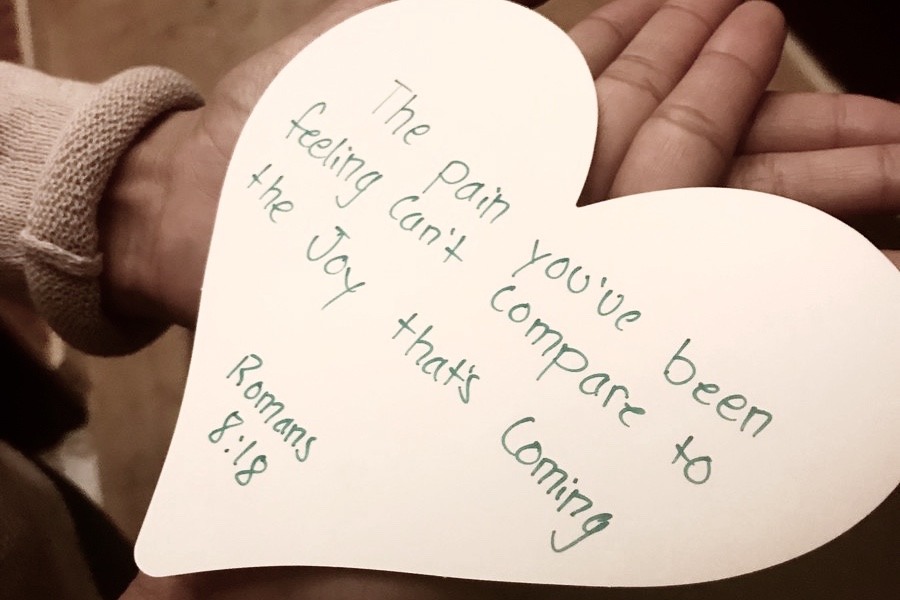 The pain you've been
feeling can't compare to
the Joy that's Coming
Romans
8:18